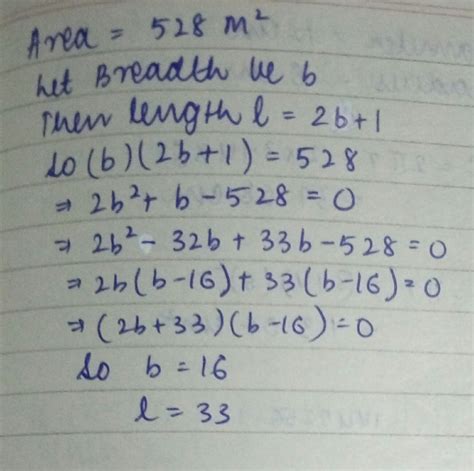 Area = 528 m²
Let Breadth be b
Then length l = 2b+1
So (b)(2b+1) = 528
⇒ 2b² + b - 528 = 0
⇒ 2b² - 32b + 33b - 528 = 0
⇒ 2b(b-16) + 33(b-16) = 0
⇒ (2b+33)(b-16) = 0
So b = 16
l = 33